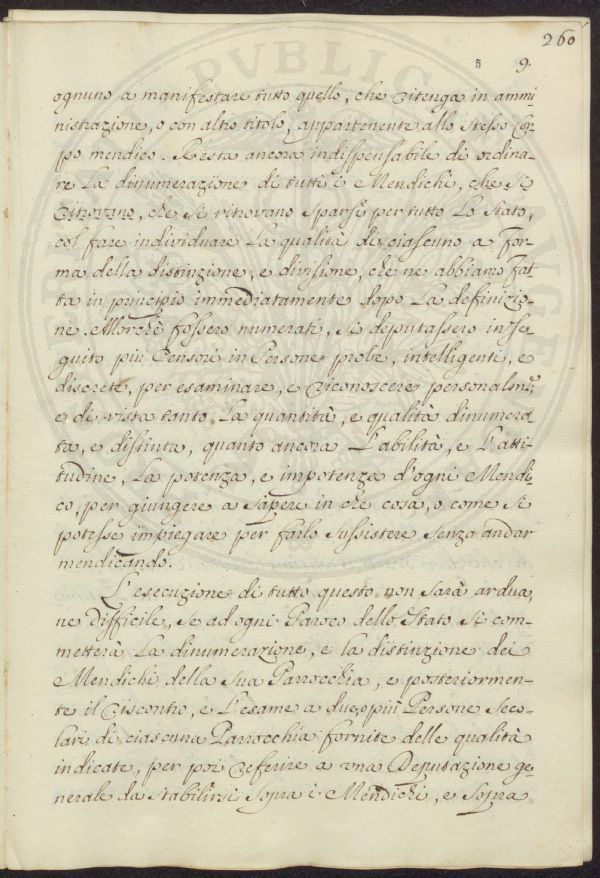 260
5 9.
ognuno a manifestare tutto quello, che ritenga in ammi
nistrazione, o con altro titolo, appartenente allo stesso Cor
po mendico. Resta ancora indispensabile di ordina-
re La dinumerazione di tutti i Mendichi, che si
ritrovano, che si ritrovano sparsi per tutto Lo Stato,
col fare individuare La qualità di ciascuno a for-
ma della distinzione, e divisione, che ne abbiamo fat
ta in principio immediatamente dopo La definizio-
ne. Allorchè fossero numerati, si deputassero in se-
guito più Censori in Persone probe, intelligenti, e
discrete, per esaminare, e riconoscere personalm.te
e di vista tanto La quantità, e qualità dinumera
ta, e distinta, quanto ancora L'abilità, e L'atti-
tudine, La potenza, e impotenza d'ogni Mendi-
co, per giungere a sapere in che cosa, o come si
potesse impiegare per farlo sussistere senza andar
mendicando.
L'esecuzione di tutto questo non sarà ardua,
ne difficile, se ad ogni Paroco dello Stato si com-
metterà La dinumerazione, e la distinzione dei
Mendichi della sua Parrocchia, e posteriormen-
te il riscontro, e L'esame a due, o più Persone Seco-
lari di ciascuna Parrocchia fornite delle qualità
indicate, per poi referire a una Deputazione ge-
nerale da stabilirsi sopra i Mendichi, e sopra